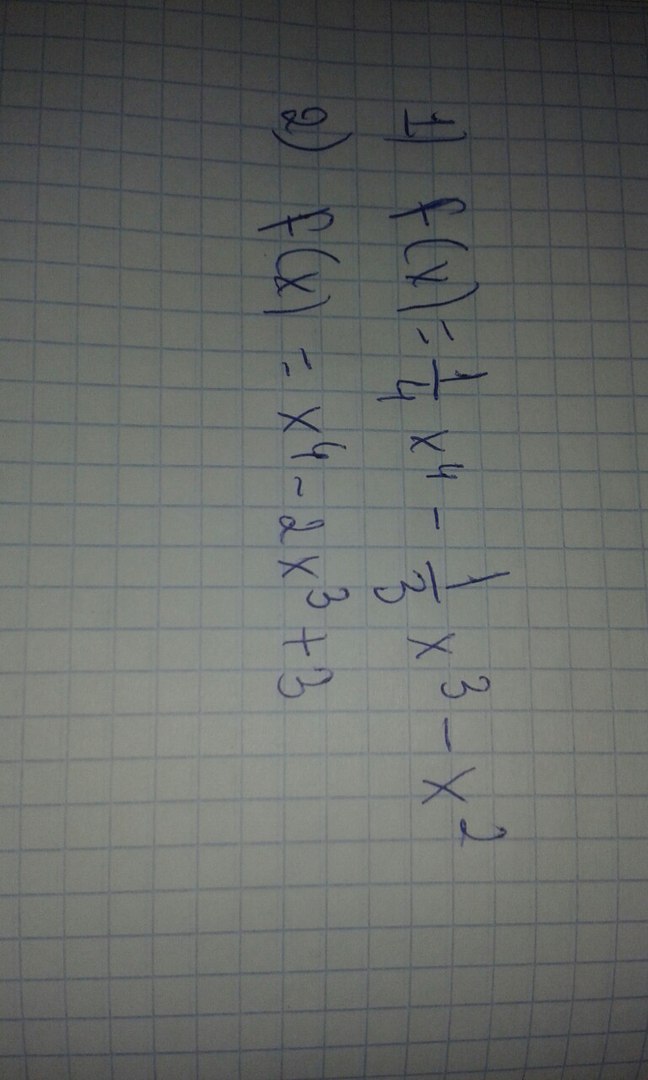 1) f(x) = 1/4 x⁴ - 1/3 x³ - x²
2) f(x) = x⁴ - 2x³ + 3